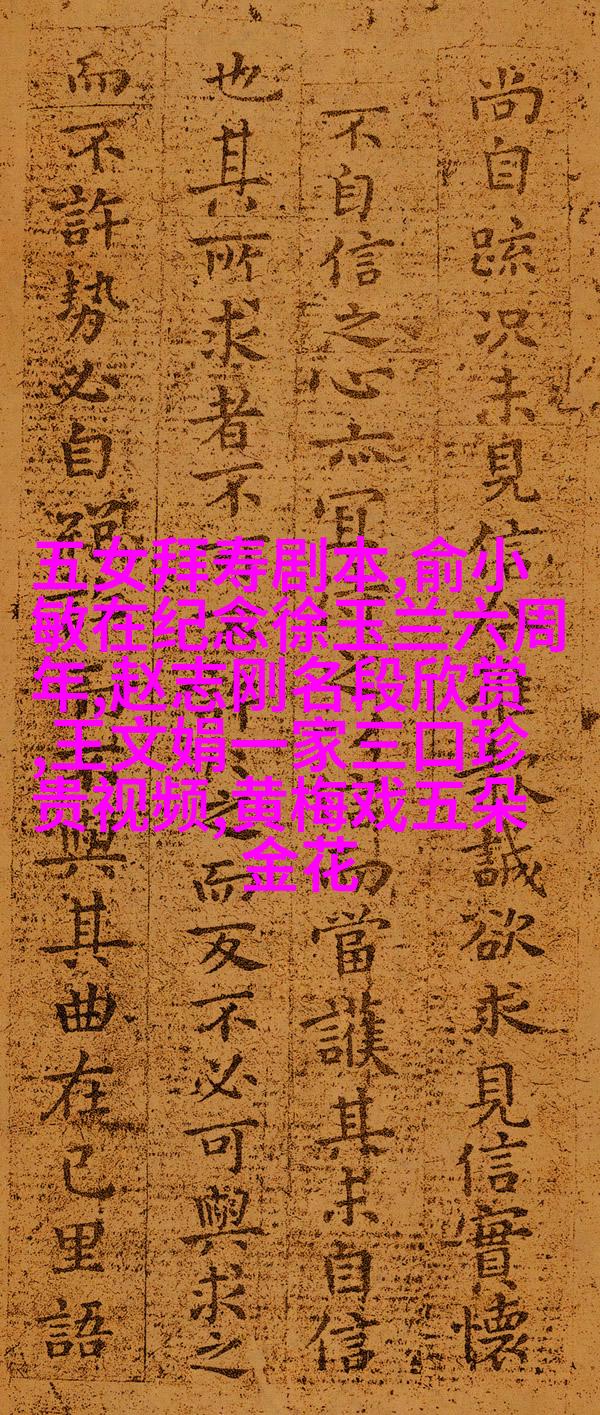 尚自疏況未見信衆誠欲求見信實懷
不自信之心亦宜當護其未自信
也其所求者不之而反不必可與求之
而不許勢必自與其曲在己里語
五女拜寿剧本,俞小
敏在纪念徐玉兰六周
年,赵志刚名段欣赏
,王文娟一家三口珍
贵视频,黄梅戏五朵
金花